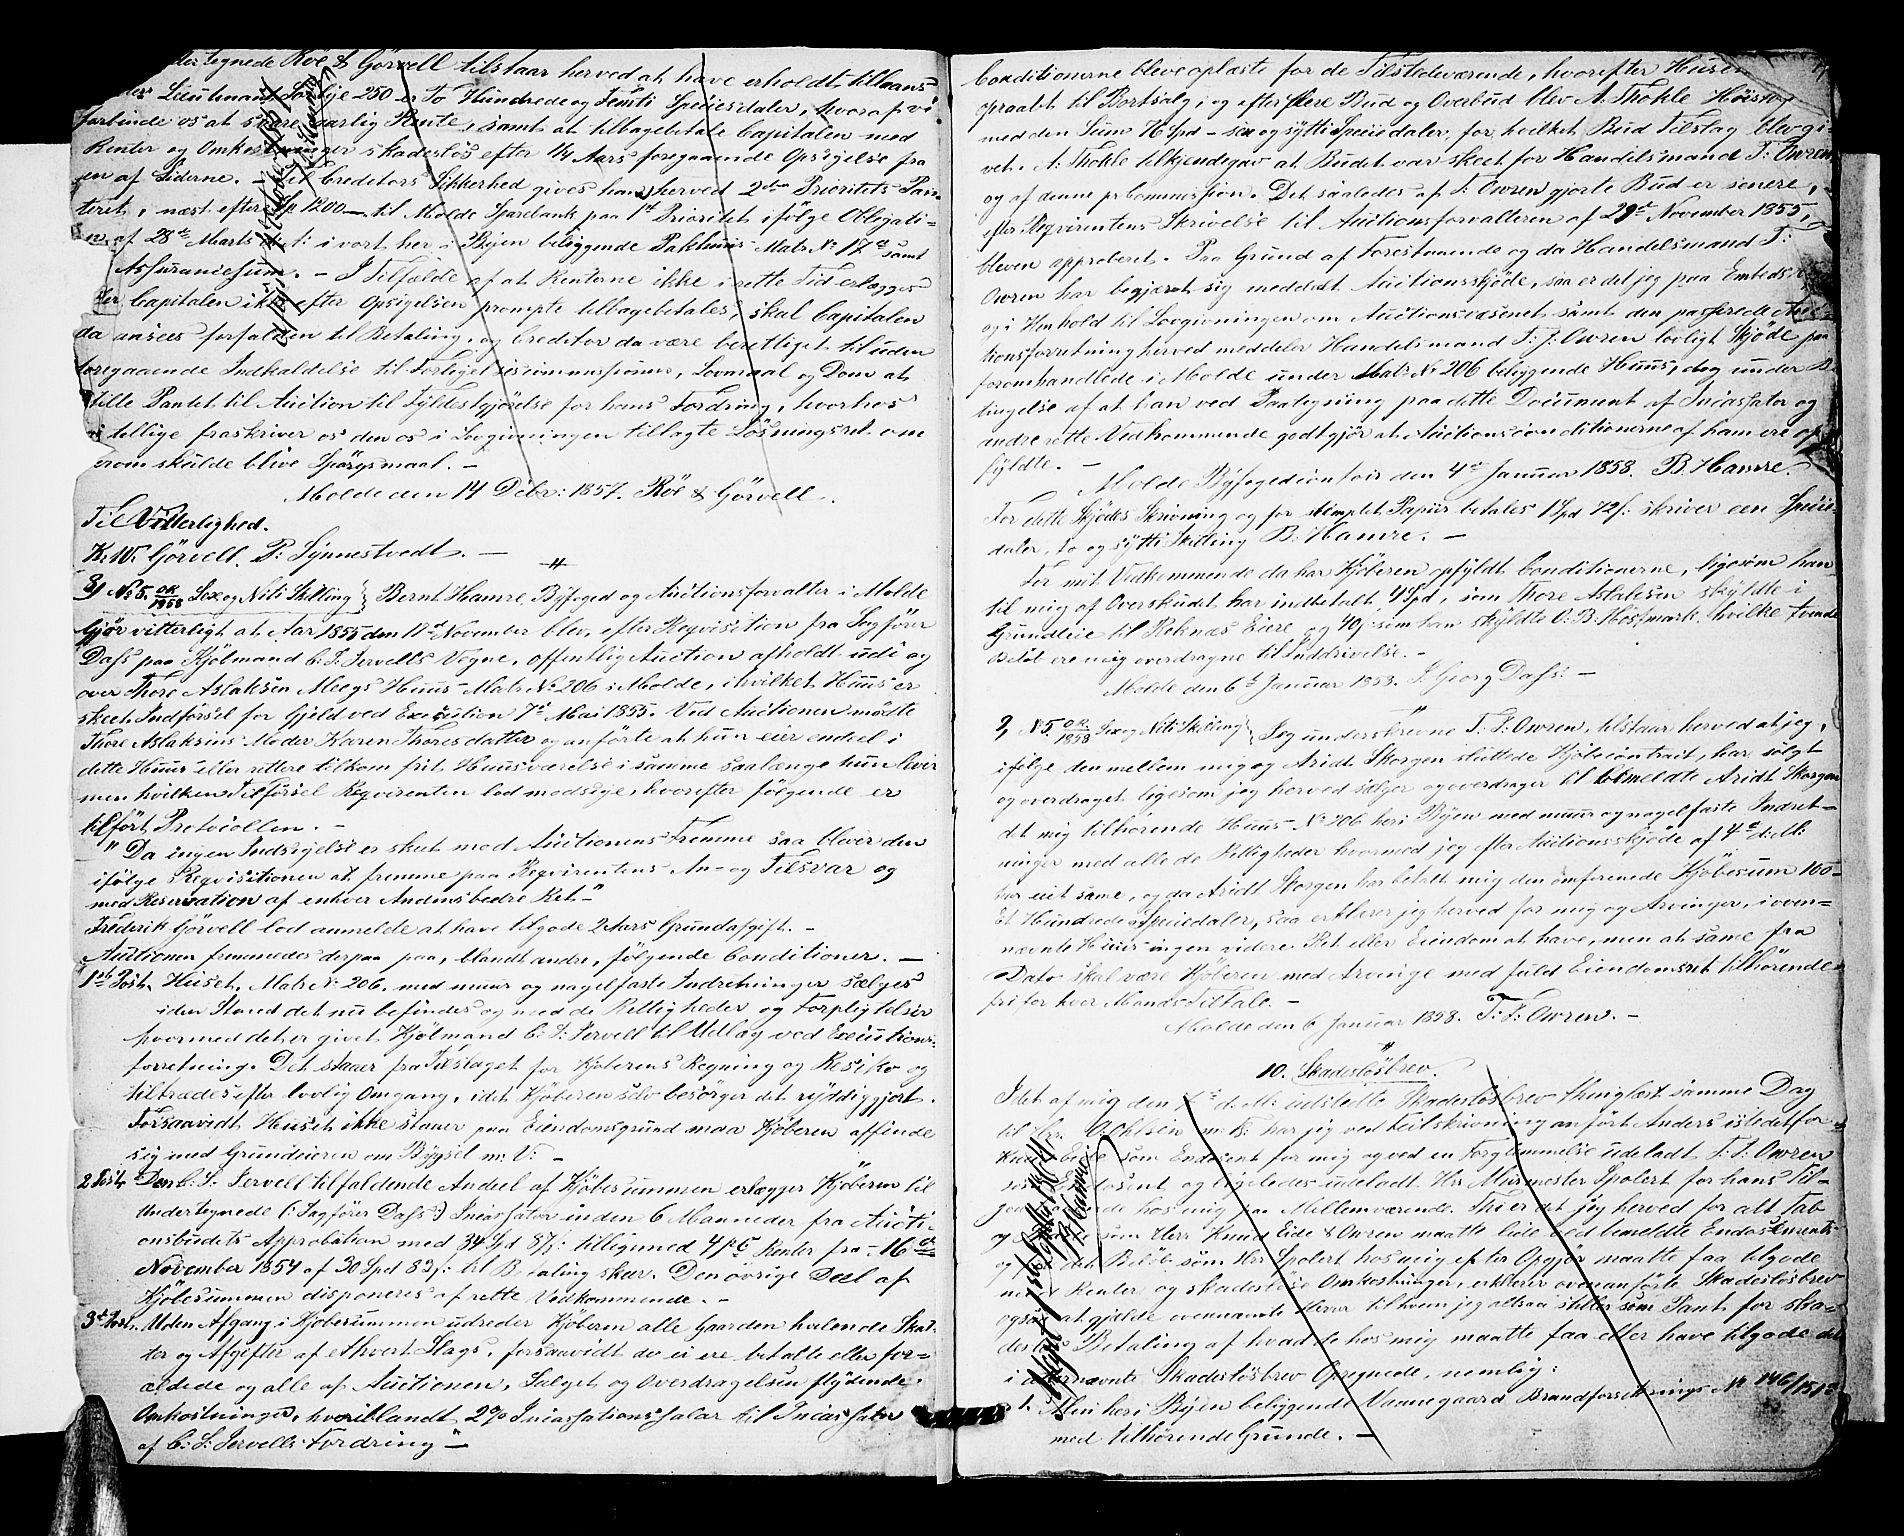 tegnede Röe & Görvell tilstaar herved at have erholdt tillaans
Lieutmant Torkje 250 er To Hundrede og Femti Speciesdaler, hvoraf vi
forbinde os at svare aarlig Rente, samt at tilbagebetale Capitalen med
Renter og Omkostninger skadeslös efter 1/4 Aars foregaaende Opsigelse fra
en af Siderne. – Til Creditors Sikkerhed gives ham herved 2den Prioritets Pan-
teret, næst efter Sp 1200 – til Molde Sparebank paa 1st Prioritet ifölge Obligati-
on af 28de Marts i vort her i Byen beliggende Pakhuus Matr No 17a samt
Assurancesum. – I Tilfælde af at Renterne ikke i rette Tid erlægges
eller Capitalen ikke efter Opsigelsen prompte tilbagebetales, skal Capitalen
da ansees forfalden til Betaling, og Creditor da være berettiget til uden
foregaaende Indkaldelse til Forligelsescommission, Lovmaal og Dom at
stille Pantet til Auction til Fyldestgjörelse for hans Fordring, hvorhos
vi tillige fraskriver os den os i Lovgivningen tillagte Lösningsret om
derom skulde blive Spörgsmaal. –
Molde den 14 Decbr: 1857. Röe & Görvell.
Til Vitterlighed.
K. W. Görvell. P: Synnestvedt. –
8) No 5. OR/1858 Sex og Niti Skilling } Bernt Hamre, Byfoged og Auctionsforvalter i Molde
Gjör vitterligt at Aar 1855 den 17de November blev, efter Reqvisition fra Sagförer
Dass paa Kjölmand C. S. Jervells Vegne, offentlig Auction afholdt udi og
over Thore Aslaksen Meegs Huus Matr No 206 i Molde, i hvilket Huus er
skeet Indförsel for Gjeld ved Execution 7de Mai 1855. Ved Auctionen mödte
Thore Aslaksens Moder Karen Thoresdatter og anförte at hun eier endeel i
dette Huus eller rettere tilkom frit Huusværelse i samme saalænge hun lever
men hvilken Tilförsel Reqvirenten lod modsige, hvorefter fölgende er
tilfört Protocollen. –
" Da ingen Indsigelse er skeet mod Auctionens Fremme saa bliver den
ifölge Reqvisitionen at fremme paa Reqvirentens An- og Tilsvar og
med Reservation af enhver Andens bedre Ret"
Frederik Görvell lod anmelde at have tilgode 2 Aars Grundafgift. –
Auctionen fremmedes derpaa paa, blandt andre, fölgende Conditioner. –
1st Post. Huset, Matr No 206, med muur og nagelfaste Indretninger sælges
i den Stand det nu befindes og med de Rettigheder og Forpligtelser
hvormed det er givet Kjölmand C. S. Jervell til Udlæg ved Executions-
forretning. Det staaer fra Tilslaget for Kjöberens Regning og Resiko og
tiltrædes efter lovlig Omgang, idet Kjöberen selv besörger det ryddiggjort.
Forsaavidt Huset ikke staaer paa Eiendomsgrund maa Kjöberen affinde
sig med Grundeieren om Bygsel m: V: –
2 Post. Den C. S. Jervell tilfaldende Andeel af Kjöbesummen erlægger Kjöberen til
Undertegnede (: Sagförer Dass :) Incassator inden 6 Maaneder fra Aucti-
onsbudets Approbation med 34 Spd 87 s: tilligemed 4 pC Renter fra 16de
November 1854 af 20 Spd 82 s: til Betaling skeer. Den övrige Deel af
Kjöbesummen disponeres af rette Vedkommende. –
3de Post. Uden Afgang i Kjöbesummen udreder Kjöberen alle Gaarden hvilende Skat-
ter og Afgifter af ethvert Slags, forsaavidt de ei ere betalte eller for-
ældede og alle af Auctionen, Salget og Overdragelsen flydende
Omkostninger, hvoriblandt 2% Incassationssalair til Incassator
af C. S. Jervells Fordring" –
Conditionerne bleve oplæste for de Tilstedeværende, hvorefter Huset
opraabt til Bortsalg, og efter flere Bud og Overbud blev A. Thokle Höistby
med den Sum 76 Spd – sex og sytti Speciedaler, for hvilket Bud Tilslag blev gi-
vet. A. Thokle tilkjendegav at Budet var skeet for Handelsmand T: Owren
og af denne pr Commission. Det saaledes af T: Owren gjorte Bud er senere,
efter Reqvirentens Skrivelse til Auctionsforvalteren af 29de November 1855,
bleven approberet. Paa Grund af Forestaaende og da Handelsmand T:
Owren har begjæret sig meddelt Auctionsskjöde, saa er det jeg paa Embeds
og i Henhold til Lovgivningen om Auctionsvæsenet samt den passerede Auc-
tionsforretning herved meddeler Handelsmand T: J: Owren lovligt Skjöde paa
foromhandlede i Molde under Matr No 206 beliggende Huus, dog under B
tingelse af at han ved Paategning paa dette Document af Incassator og
andre rette Vedkommende godtgjör at Auctionsconditionerne af ham ere op-
fyldte. –
Molde Byfogedcontoir den 4de Januar 1858. B. Hamre.
For dette Skjödes Skrivning og for stemplet Papiir betales 1 Spd 72 s: skriver een Specie-
daler, to og sytti Skilling B: Hamre. –
For mit Vedkommende da har Kjöberen opfyldt Conditionerne, ligesom han
til mig af Overskudet har indbetalt 4 Spd, som Thore Aslaksen skyldte i
Grundleie til Reknæs Eiere og 40 s: som han skyldte O: B: Hostmark, hvilke tvende
Belöb ere mig overdragne til Inddrivelse. –
Molde den 6te Januar 1858. J. Georg Dass: –
9) No 5 OR/1858 Sex og Niti Skilling } Jeg underskrevne T. J. Owren, tilstaar herved at jeg,
ifölge den mellem mig og Aridt Skorgen sluttede Kjöbecontract, har solgt
og overdraget ligesom jeg herved sælger og overdrager til bemeldte Aridt Skorgen
det mig tilhörende Huus No 206 her i Byen med muur og nagelfaste Indret-
ninger med alle de Rettigheder hvormed jeg efter Auctionsskjöde af 4de d: M:
har eiet same, og da Aridt Skorgen har betalt mig den omforenede Kjöbesum 100
Et Hundrede Speciedaler, saa erklærer jeg herved for mig og Arvinger, i oven-
nævnte Huus ingen videre Ret eller Eiendom at have, men at same fra
Dato skal være Kjöberen med Arvinge med fuld Eiendomsret tilhörende
fri for hver Mands Tiltale. –
Molde den 6 Januar 1858. T: J: Owren. –
10. Skadeslösbrev.
I det af mig den de d: M: udstedte Skadeslösbrev thinglæst samme Dag
til Hr. Oehlsen m: fl: har jeg ved Feilskrivning anfört Anders istedetfor
Knud Eide som Endosent for mig og ved en Forglemmelse udeladt T. J. Owren
som Endosent og ligeledes udeladt Hr Muurmester Spolert for hans Til-
godehavende hos mig paa Mellemværende. Thi er det jeg herved for alt Tab
og som Herr Knud Eide & Owren maatte lide ved bemeldte Endossements
og for det Belöb som Hr Spolert hos mig efter Opgjör maatte faa tilgode
med Renter og skadeslöse Omkostninger, erklærer ovenanförte Skadeslösbrev
ogsaa at gjelde ovennævnte Herrer til hvem jeg altsaa stiller som Pant for ska-
deslös Betaling af hvad de hos mig maatte faa eller have tilgode det
i ovennævnte Skadeslösbrev Opregnede, nemlig:
1. Min her i Byen beliggende Vaanegaard Brandforsikrings No 146/151
med tilhörende Grunde. –